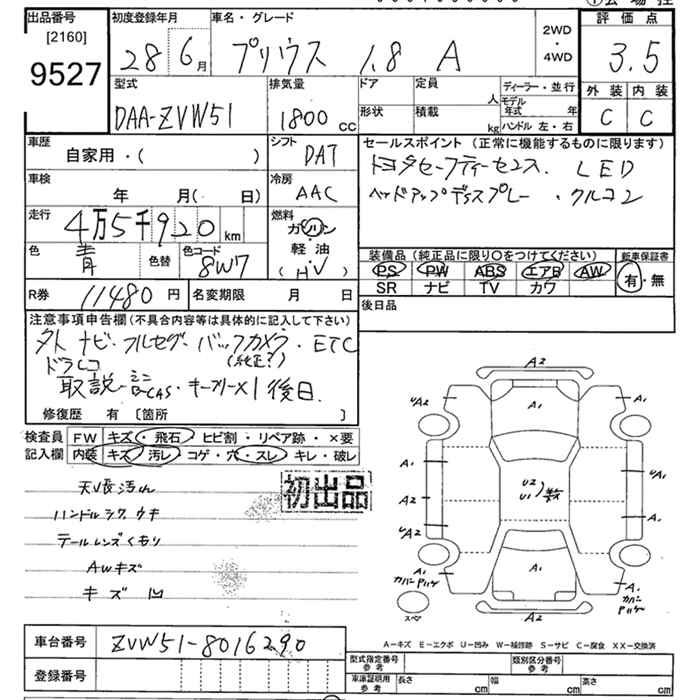 出品番号
[2160]
9527
初度登録年月
28 6月
車名・グレード
プリウス 1.8 A
2WD
・
4WD
評価点
3.5
外装 内装
C C
型式
DAA-ZVW51
排気量
1800 cc
ドア
形状
定員
人
積載
kg
ディーラー・並行
モデル年式 年
ハンドル 左・右
車歴
自家用・( )
シフト
DAT
車検
年 月( 日)
冷房
AAC
走行
4万5千920 km
燃料
ガソリン
・
軽油
(HV)
色
青
色替
色コード
8W7
R券
11480円
名変期限 月 日
セールスポイント(正常に機能するものに限ります)
トヨタセーフティーセンス. LED
ヘッドアップディスプレー. クルコン
装備品(純正品に限り○をつけてください)
PS PW ABS エアB AW
SR ナビ TV カワ
新車保証書
有・無
後日品
注意事項申告欄(不具合内容等は具体的に記入して下さい)
外ナビ・フルセグ・バックカメラ・ETC
ドラレコ (純正?)
取説・ミニB-CAS・キーフリー×1後日.
修復歴 有 〔箇所 〕
検査員記入欄
FW キズ・飛石・ヒビ割・リペア跡・×要
内装 キズ・汚レ・コゲ・穴・スレ・キレ・破レ
初出品
天V長汚れ
ハンドルシワ ウキ
テールレンズくもり
AWキズ
キズ 凹
A2
A1
UA2
A2
A1
A1
UA1
A2
U2
U1
)散
A1
UA2
A1
カバーハゲ
A1
A1
カバーハゲ
A2
スペア
A-キズ E-エクボ U-凹み W-補修跡 S-サビ C-腐食 XX-交換済
車台番号
ZVW51-8016290
登録番号
型式指定番号
参考
類別区分番号
参考
車庫証明用
参考
長さ cm
幅 cm
高さ cm